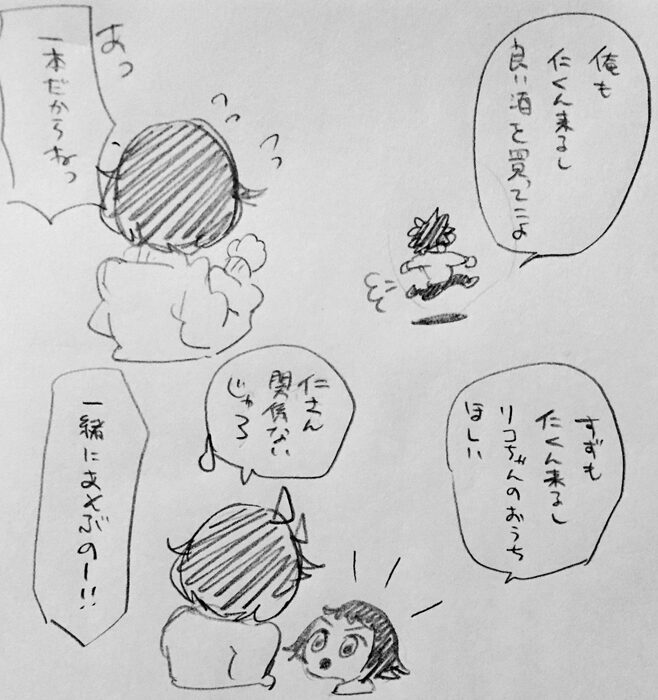 俺も
仁くん来るし
良い酒を買ってこよ
あっ
一本だからねっ
すずも
仁くん来るし
リコちゃんのおうち
ほしい
仁さん
関係ない
じゃろ
一緒にあそぶのー!!